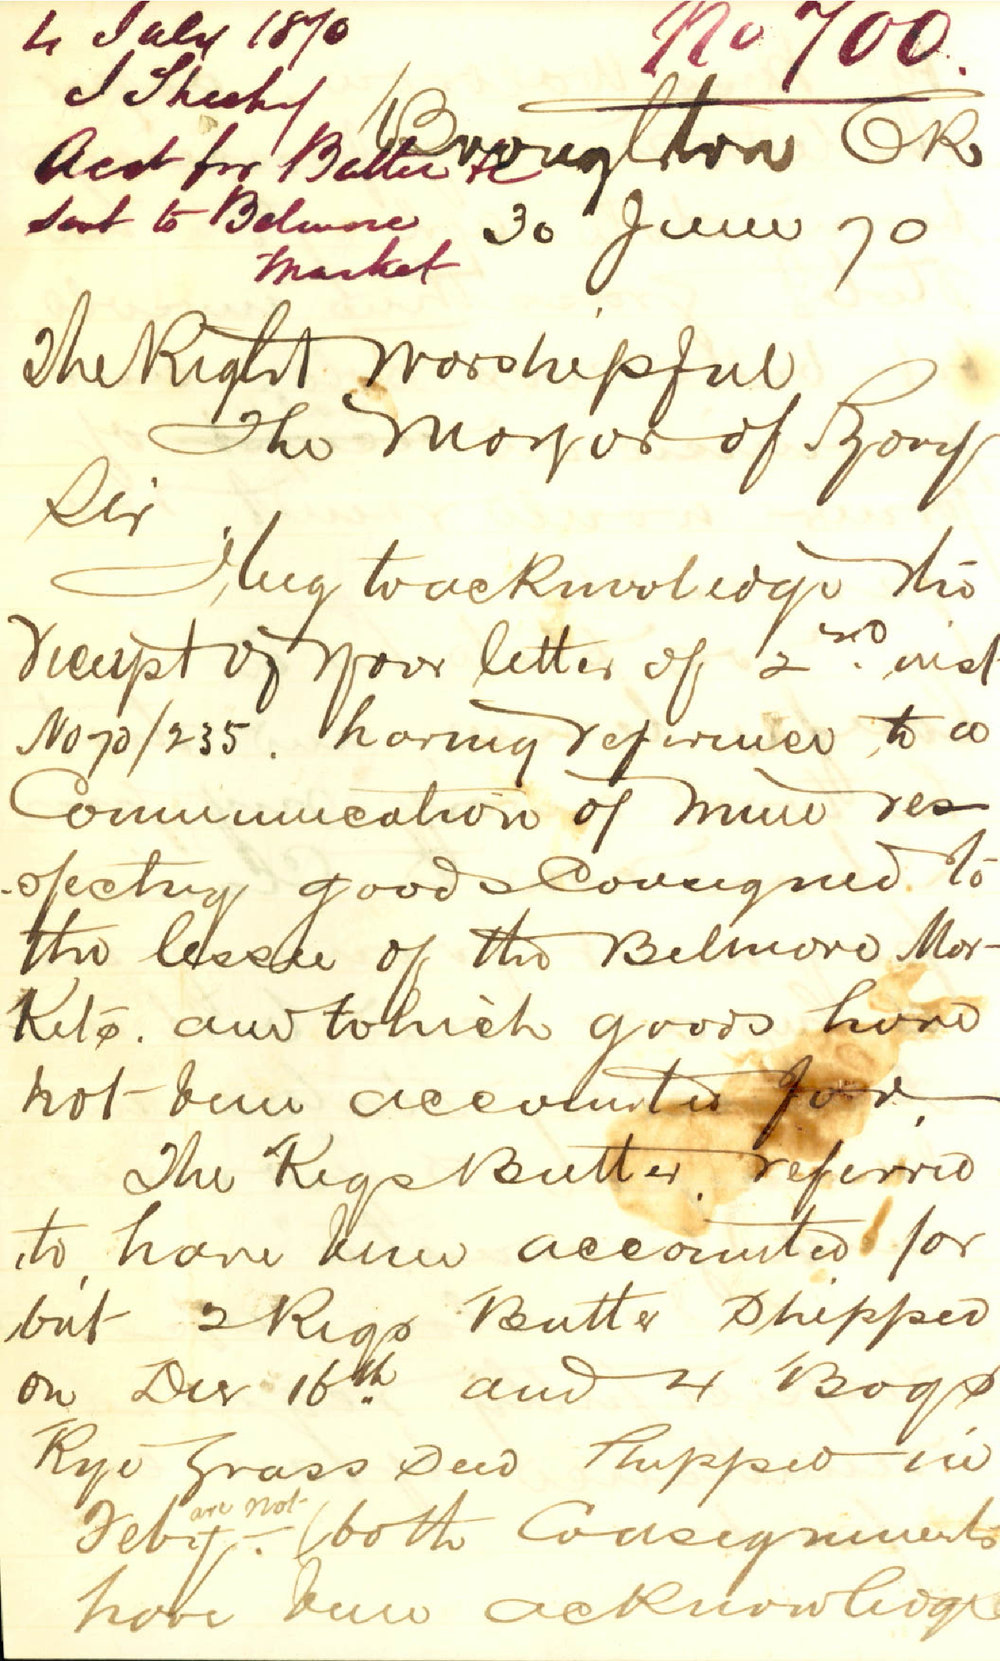 4 July 1870
J Sheehy
Acct for Butter &c
sent to Belmore
Market
No 700.
Broughton Ck
30 June 70
The Right Worshipful
The Mayor of Sydney
Sir
I beg to acknowledge the
receipt of your letter of 2nd inst
No 70/235. having reference to a
Communication of mine res
-pecting goods Consigned to
the lessee of the Belmore Mar-
kets. and which goods have
not been accounted for.
The Kegs Butter. referred
to, have been accounted for
but 2 Kegs Butter Shipped
on Decr 16th. and 4 Bags
Rye Grass Seed Shipped in
are not
Feby. - (both Consignments
have been acknowledge